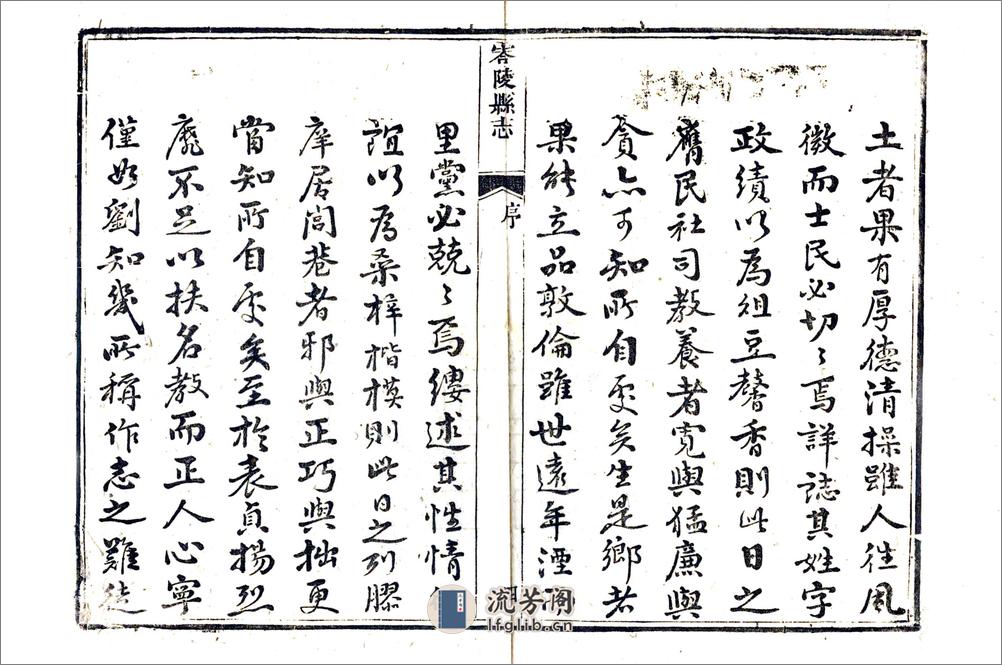 土者果有厚德清操雖人往風
微而士民必切〻焉詳誌其姓字
政績以為俎豆馨香則此日之
膺民社司教養者寬與猛廉與
貪亦可知所自處矣生是鄉者
果能立品敦倫雖世遠年湮
零陵縣志
序
里黨必兢〻焉縷述其性情
誼以為桑梓楷模則此日之列膠
庠居閭巷者邪與正巧與拙更
當知所自處矣至於表貞揚烈
靡不足以扶名教而正人心寧
僅如劉知幾所稱作志之難徒
流芳阁
lfglib.cn